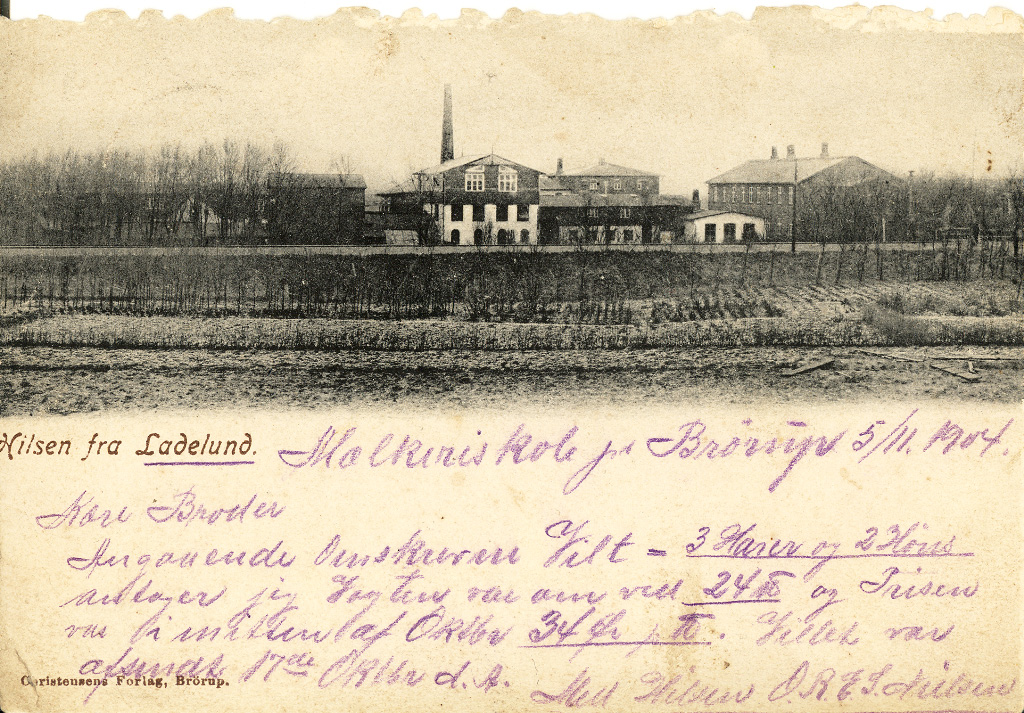 Hilsen fra Ladelund. Mælkeriskole pr Brörup 5/11. 1904.
Kære Broder
Angaaende Omskreven Vilt = 3 Harer og 2 Høns
antager jeg Vægten var om ved 24 ℔ og Prisen
var i mitten af Oktbr 34 Øre pr ℔. Vildtet var
afsendt 17de Oktbr d. A.
Med Hilsen O.R.E.S. Nielsen
Christensens Forlag, Brörup.